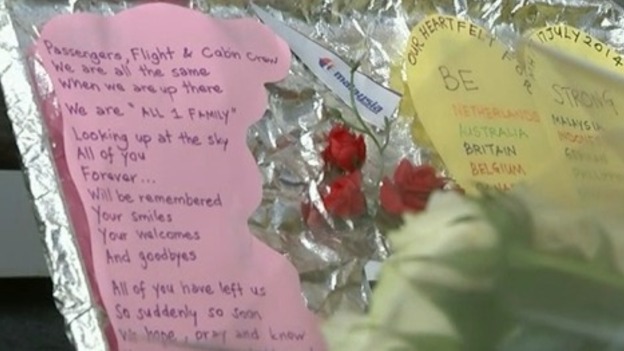 Passengers, Flight & Cabin Crew
We are all the same
When we are up there
We are "ALL 1 FAMILY"
Looking up at the sky
All of you
Forever...
Will be remembered
Your smiles
Your welcomes
And goodbyes
All of you have left us
So suddenly so soon
We hope, pray and know
malaysia
OUR HEARTFELT
FOR
BE
NETHERLANDS
AUSTRALIA
BRITAIN
BELGIUM
17 JULY 2014
STRONG
MALAYSIA